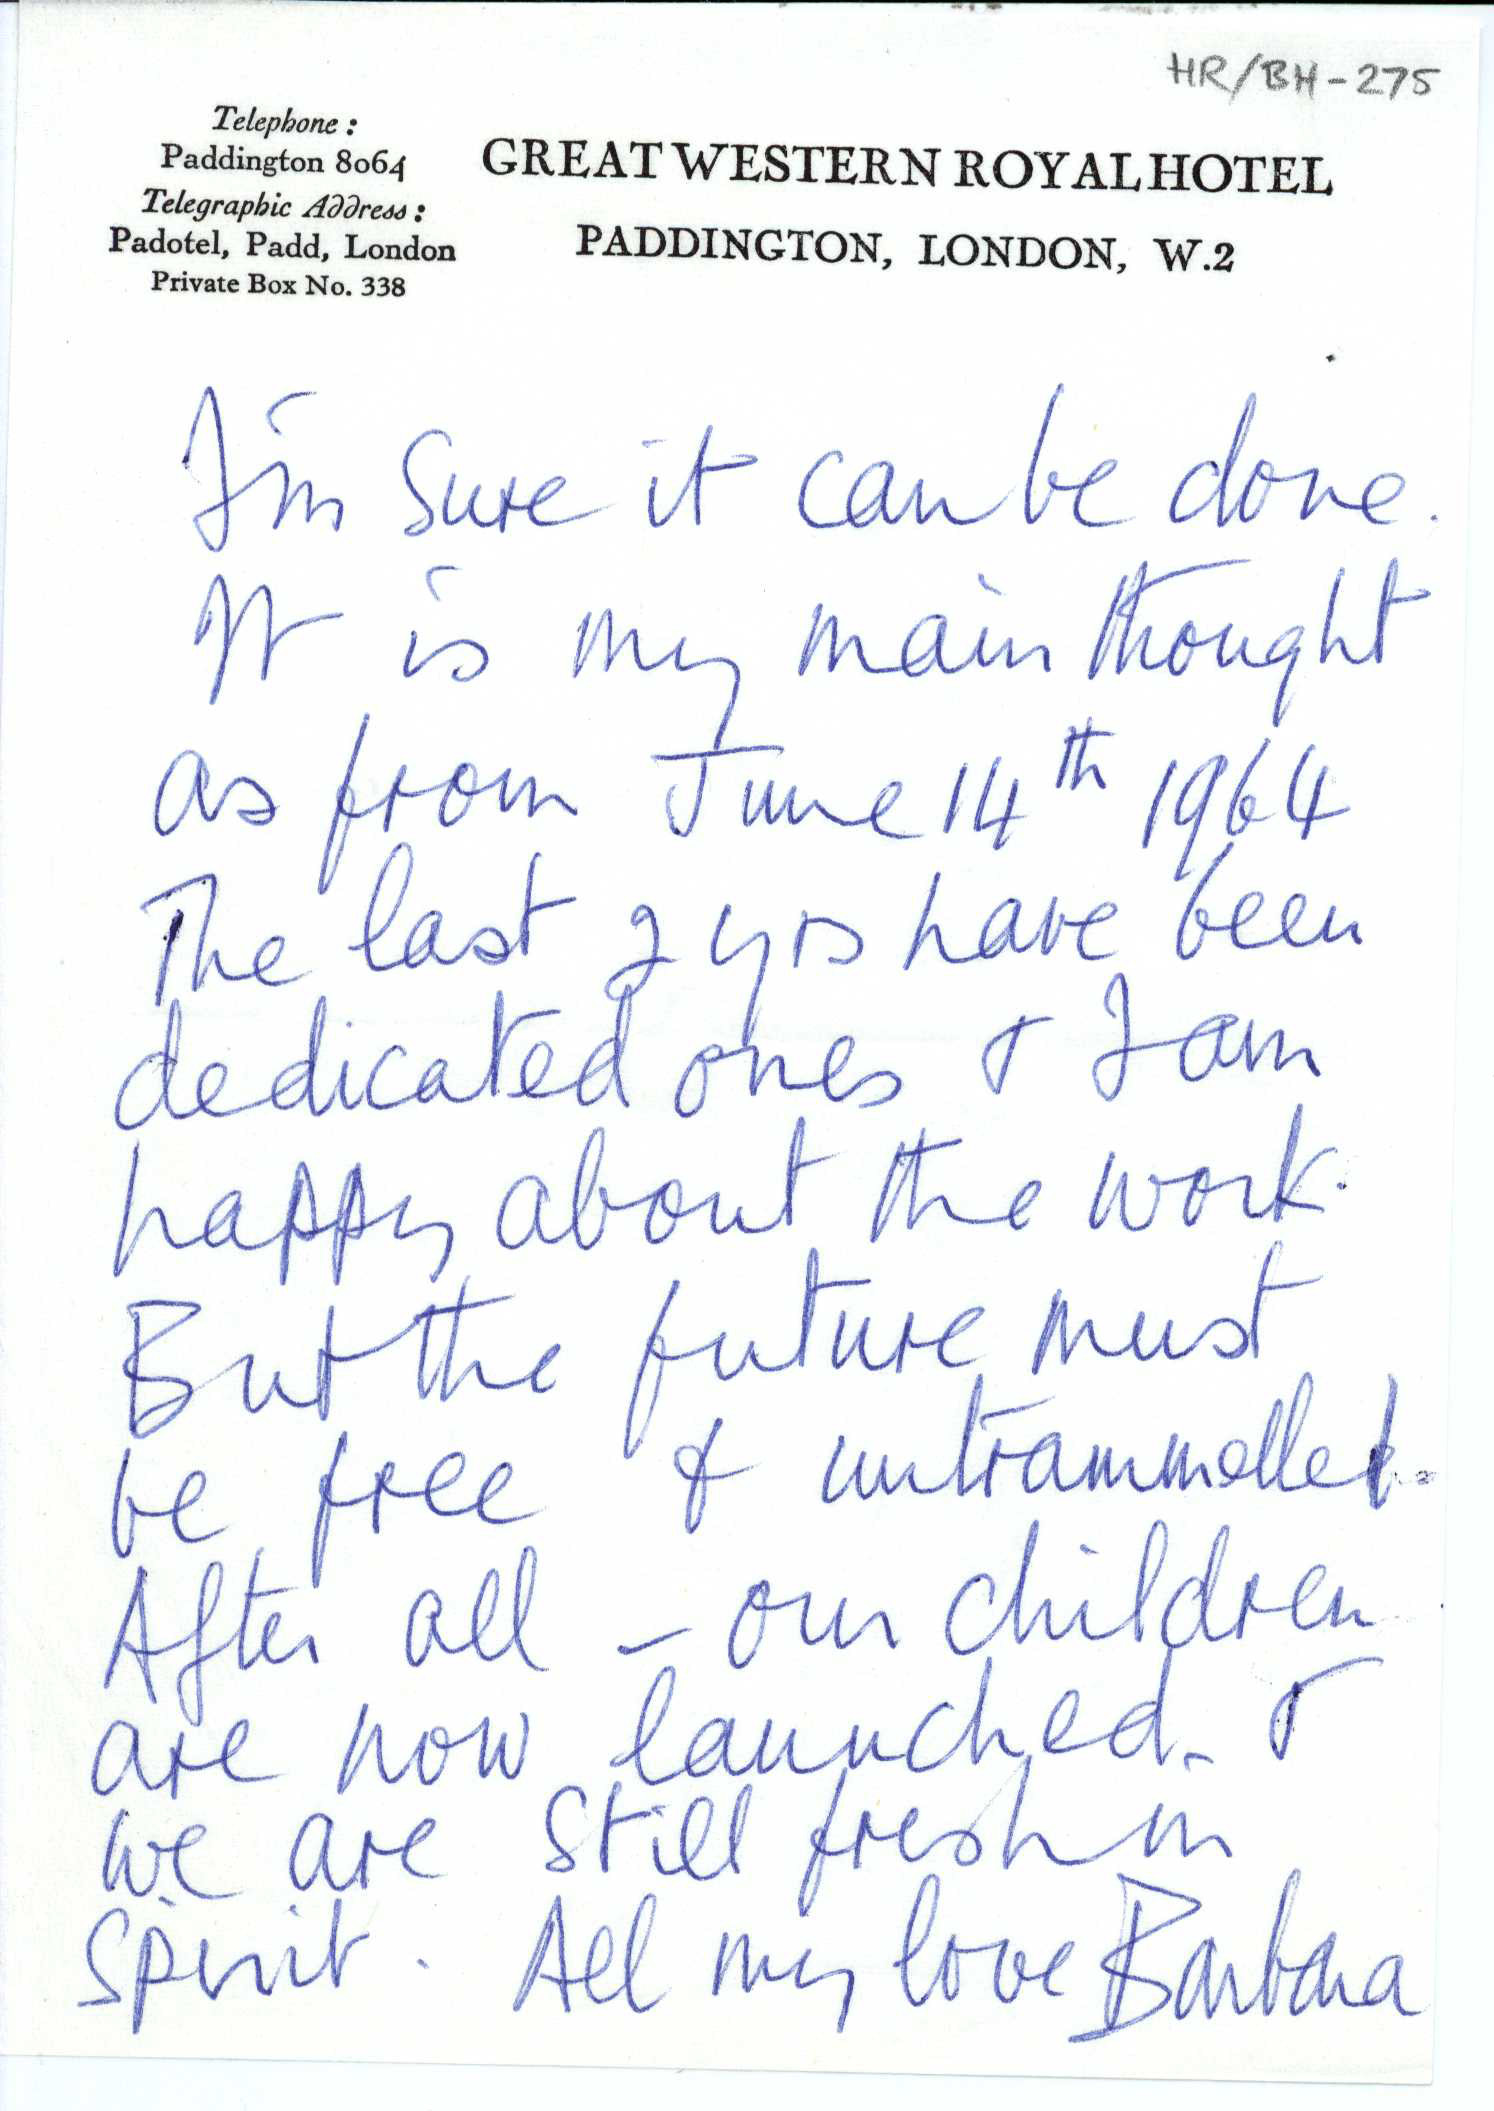 HR/BH-275
Telephone:
Paddington 8064
Telegraphic Address:
Padotel, Padd, London
Private Box No. 338
GREAT WESTERN ROYAL HOTEL
PADDINGTON, LONDON, W.2
I'm sure it can be done.
It is my main thought
as from June 14th 1964
The last 2 yrs have been
dedicated ones & I am
happy about the work.
But the future must
be free & untrammelled.
After all – our children
are now launched – &
we are still fresh in
spirit. All my love Barbara